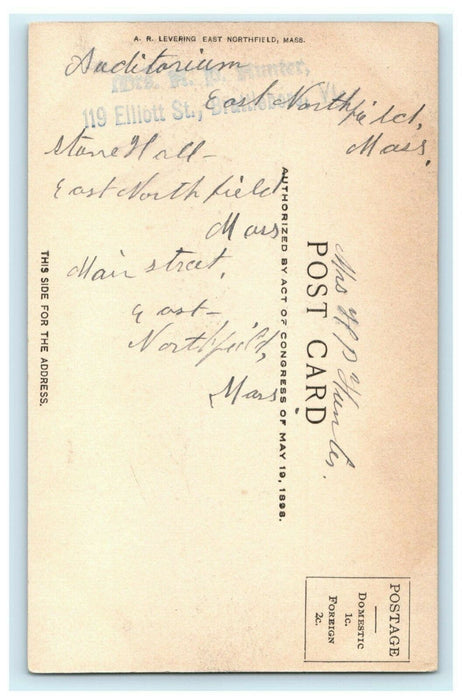 A. R. LEVERING EAST NORTHFIELD, MASS.
Auditorium
East Northfield,
Mass.
Mrs. H. P. Hunter,
119 Elliott St., Brattleboro, Vt.
Stone Hall -
East Northfield
Mass
Main street,
East -
Northfield,
Mass.
AUTHORIZED BY ACT OF CONGRESS OF MAY 19, 1898.
POST CARD
Mrs H P Hunter.
THIS SIDE FOR THE ADDRESS.
POSTAGE
DOMESTIC
1c.
FOREIGN
2c.